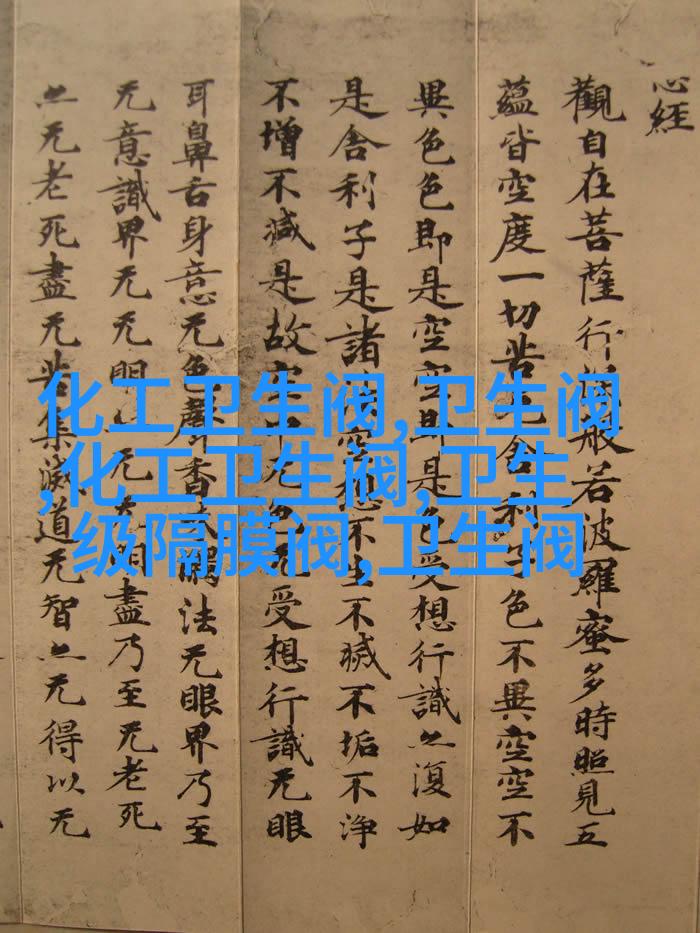 心経
觀自在菩薩行深般若波羅蜜多時照見五
蘊皆空度一切苦厄舍利子色不異空空不
異色色即是空空即是色受想行識亦復如
是舍利子是諸法空想不生不滅不垢不淨
不增不減是故空中无色无受想行識无眼
耳鼻舌身意无色聲香味觸法无眼界乃至
无意識界无无明亦无无明盡乃至无老死
亦无老死盡无苦集滅道无智亦无得以无
化工卫生阀,卫生阀
,化工卫生阀,卫生
级隔膜阀,卫生阀